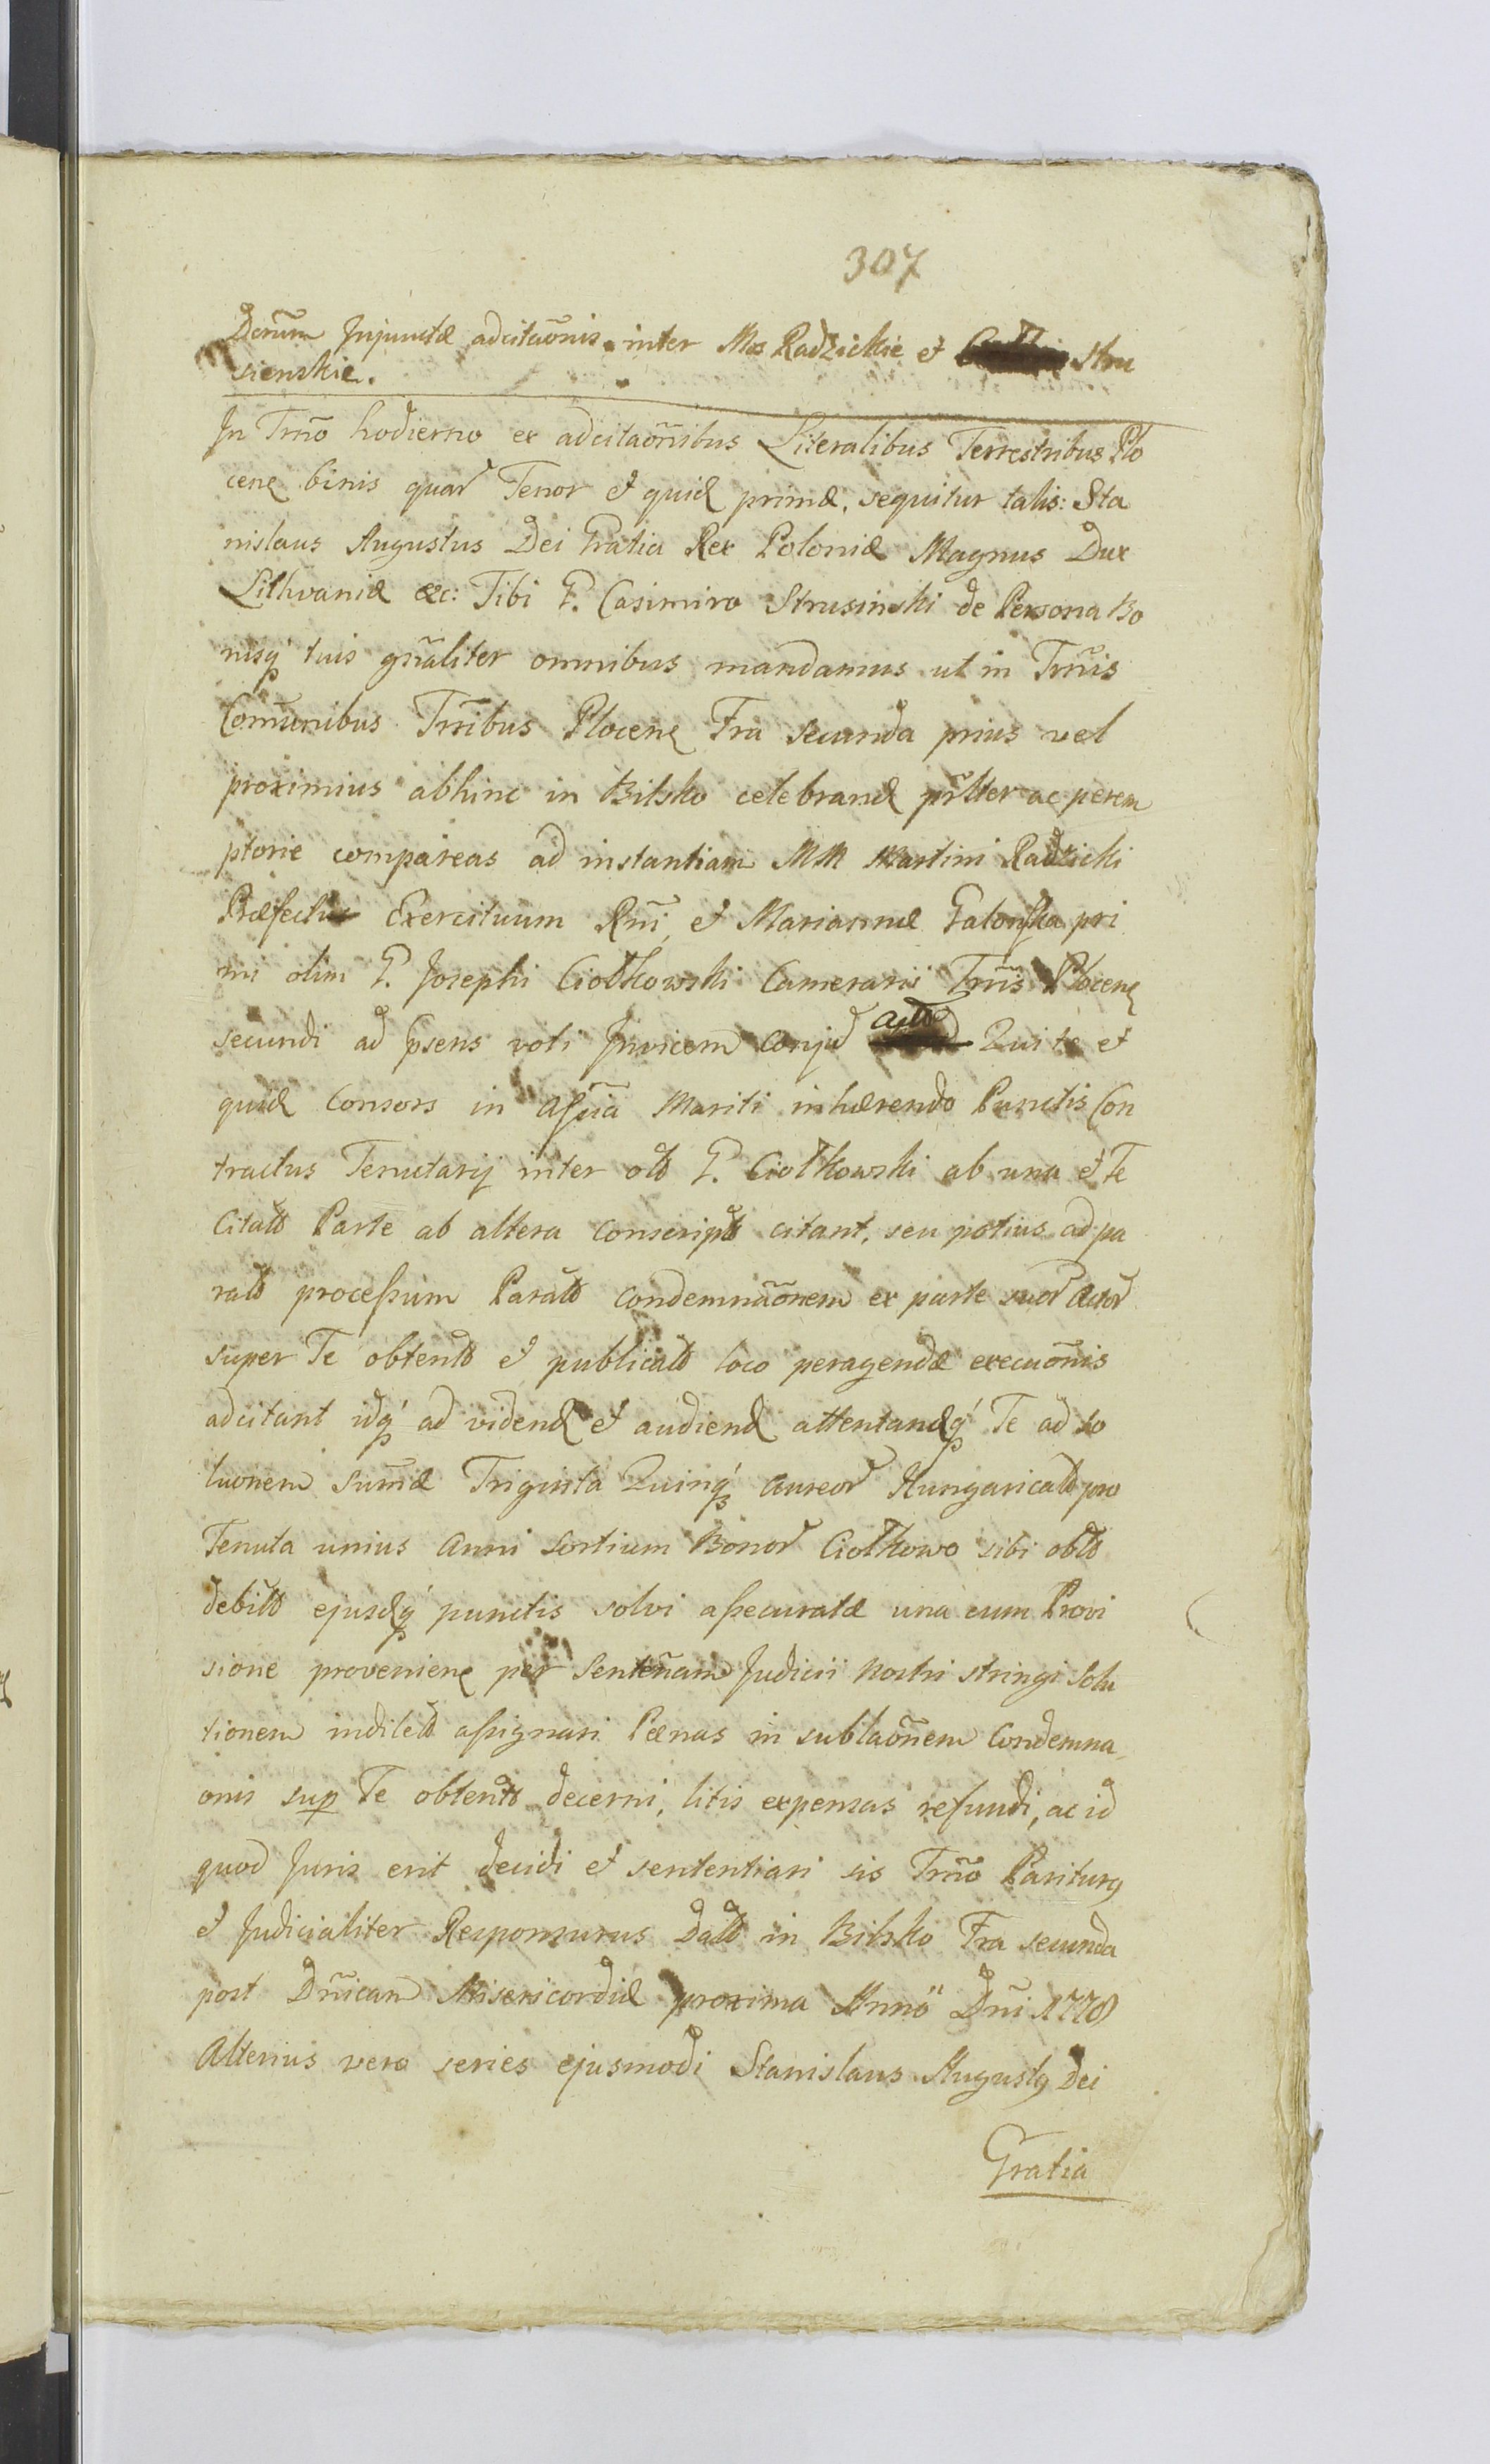 307
Decrũm Injunctæ adcitaõnis inter Mos Radzickie et Stru
sienskie.
In Trño hodierno ex adcitaõnibus Literalibus Terrestribus Plo
cen binis quar Tenor et quid primæ, sequitur talis: Sta
nislaus Augustus Dei Gratia Rex Poloniæ Magnus Dux
Lithvaniæ &c: Tibi G. Casimiro Strusinski de Persona Bo
nisq tuis gñaliter omnibus mandamus ut in Trñis
Com̃unibus Trribus Plocen Fra secunda prius vel
proximius abhinc in Bilsko celebrand pñlter ac perem
ptorie compareas ad instantiam MM Martini Radzicki
Præfectus Exercituum Rni, et Mariannæ Galonska pri
mi olim G. Josephi Ciołkowski Camerarii Trris Plocen
secundi ad psens voti Invicem Conju Qui te et
quid Consors in assña Mariti inhærendo Punctis Con
tractus Tenutarij inter olt G. Ciołkowski ab una et Te
Citatt Parte ab altera conscript citant, seu potius ad pa
ratt processum Paratt condemnaõnem ex parte suor Actor
super Te obtentt et publicatt loco peragendæ execuõnis
adcitant idq ad videnđ et audienđ attentandq Te ad so
luonem Sum̃æ Triginta Quinq aureor Hungaricalt pro
Tenuta unius Anni sortium Bonor Ciołkowo sibi obtt
debitt ejusdq punctis solvi assecuratæ una cum Provi
sione provenien per Sentenam Judicii Nostri stringi Solu
tionem indilett assignari Pænas in sublaõnem Condemna
onis sup Te obtentt decerni, litis expensas refundi, ac id
quod Juris erit decidi et sententiari sis Trño Pariturq
et Judicialiter Responsurus Datt in Bilsko Fra secunda
post Dñicam Misericordiæ proxima Anno Dñi 1778
Alterius vero series ejusmodi Stanislaus Augustq Dei
Gratia